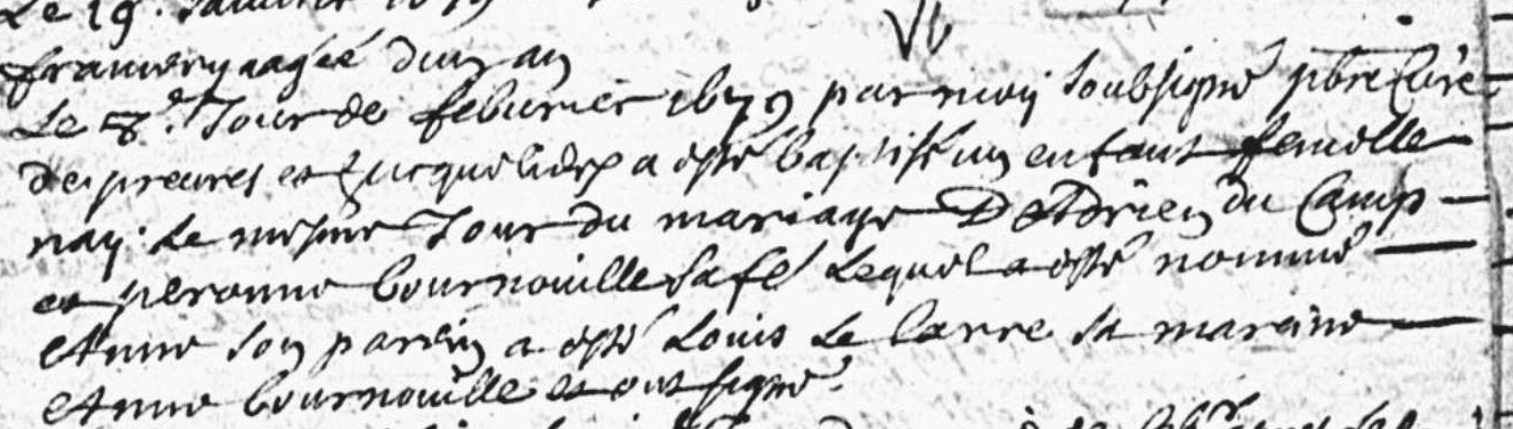 Le 19.
aagée d'un an
Le 8.e Jour de feburier 1679 par moy soubsigné pbre Curé
de preures et a esté baptisé un enfant femelle
nay le mesme Jour du mariage D'Adrien du Camp
et peronne bournouille sa fe Lequel a esté nommé
Anne son parein a esté Louis Le sa mareine
Anne bournouille et ont signé.